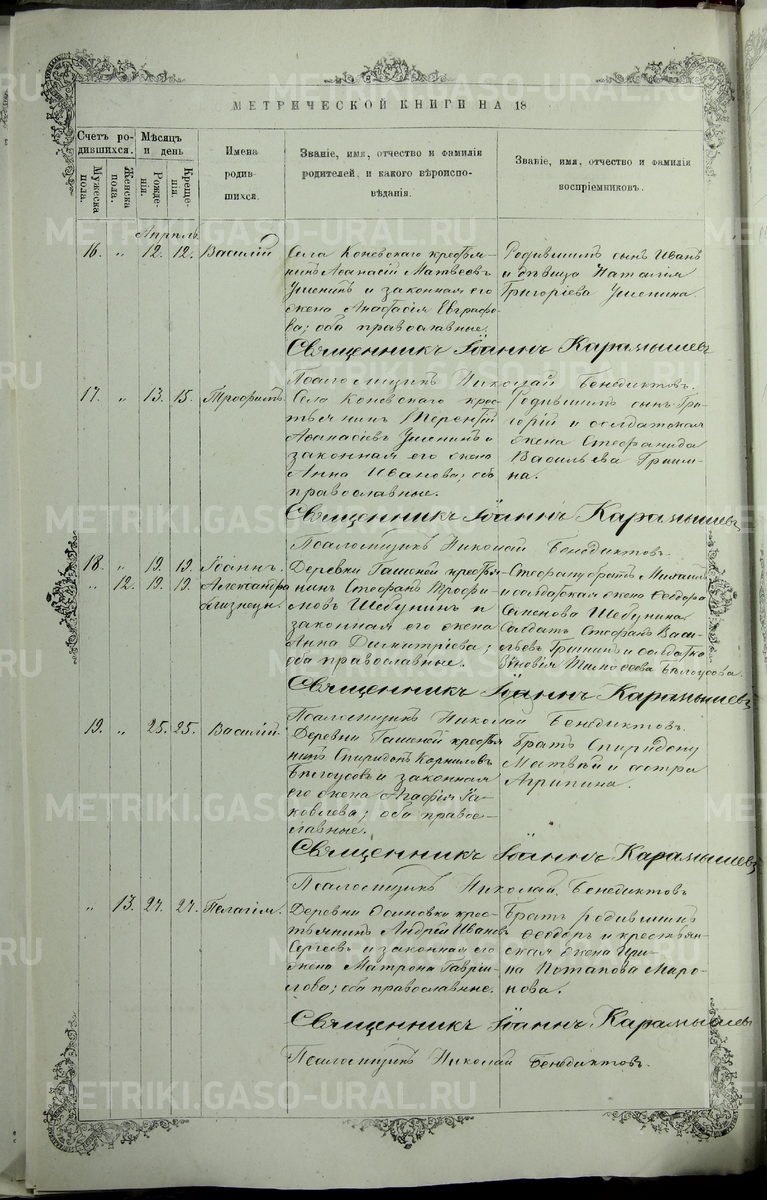 МЕТРИЧЕСКОЙ КНИГИ НА 18
Счетъ ро-
дившихся.
Мужеска
пола.
Женска
пола.
Мѣсяцъ
и день
Рожде-
нія.
Креще-
нія.
Имена
родив-
шихся.
Званіе, имя, отчество и фамилія
родителей, и какого вѣроиспо-
вѣданія.
Званіе, имя, отчество и фамилія
воспріемниковъ.
Апрѣль
16. " 12. 12. Василій
Села Коневскаго крестья-
нинъ Аѳанасій Матвеевъ
Ушенинъ и законная его
жена Анастасія Евграфо-
ва; оба православные.
Родившимъ сынъ Иванъ
и дѣвица Наталія
Григоріева Ушенина.
Священникъ Іоаннъ Карамышевъ
Псаломщикъ Николай Бенедиктовъ.
17. " 13. 15. Трофимъ.
Села Коневскаго крес-
тьянинъ Терентій
Аѳанасіевъ Ушенинъ и
законная его жена
Анна Иванова; оба
православные.
Родившимъ сынъ Гри-
горій и солдатская
жена Стефанида
Васильева Гриши-
на.
Священникъ Іоаннъ Карамышевъ
Псаломщикъ Николай Бенедиктовъ.
18. " 19. 19. Іоаннъ.
" 12. 19. 19. Александра
близнецы.
Деревни Гашеной крестья-
нинъ Стефанъ Трофи-
мовъ Шебунинъ и
законная его жена
Анна Димитріева;
оба православные.
Стефану братъ Михаилъ
и солдатская жена Ѳеодора
Семенова Шебунина.
Солдатъ Стефанъ Васи-
льевъ Гришинъ и солдатка
Зиновія Тимоѳеева Бѣлоусова.
Священникъ Іоаннъ Карамышевъ
Псаломщикъ Николай Бенедиктовъ.
19. " 25. 25. Василій.
Деревни Гашеной крестья-
нинъ Спиридонъ Корниловъ
Бѣлоусовъ и законная
его жена Агафія Іа-
ковлева; оба право-
славные.
Братъ Спиридону
Матвѣй и сестра
Агрипина.
Священникъ Іоаннъ Карамышевъ
Псаломщикъ Николай Бенедиктовъ
" 13. 27. 27. Пелагія.
Деревни Осиновки крес-
тьянинъ Андрей Ивановъ
Сергеевъ и законная его
жена Матрона Гаврии-
лова; оба православные.
Братъ родившимъ
Ѳеодоръ и крестьян-
ская жена Ири-
на Потапова Миро-
нова.
Священникъ Іоаннъ Карамышевъ
Псаломщикъ Николай Бенедиктовъ.
METRIKI.GASO-URAL.RU